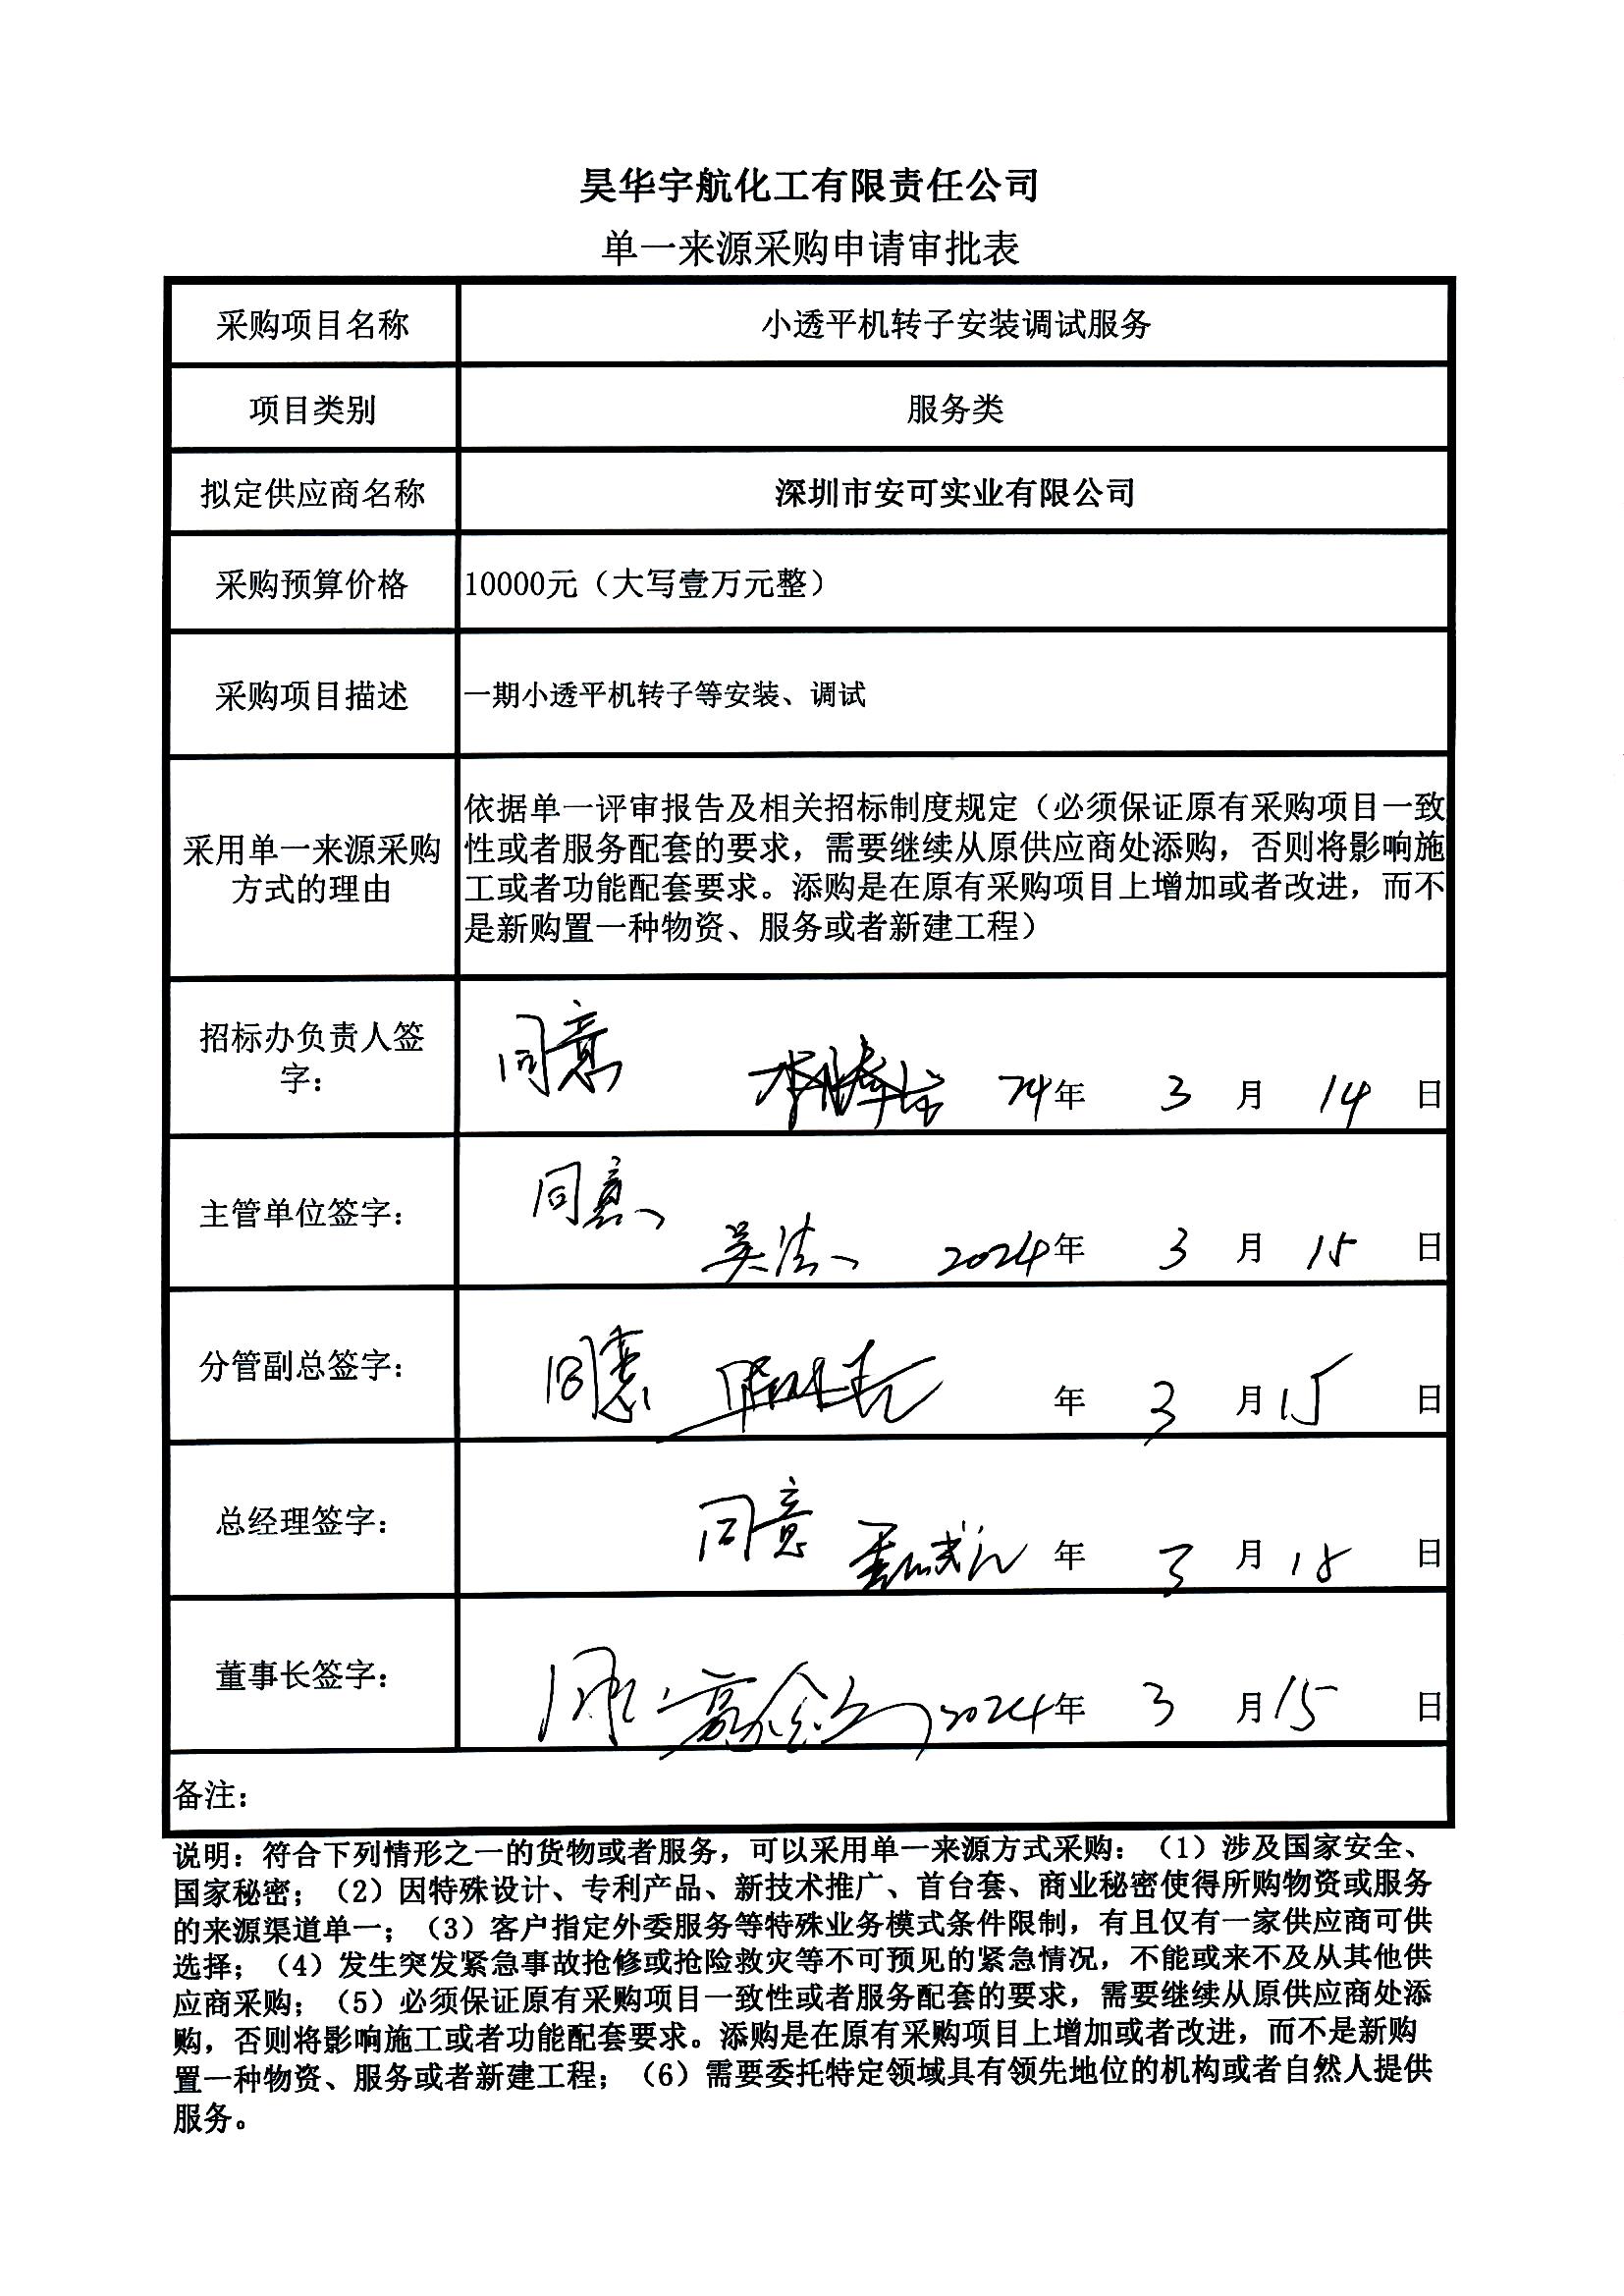 昊华宇航化工有限责任公司
单一来源采购申请审批表
采购项目名称 小透平机转子安装调试服务
项目类别 服务类
拟定供应商名称 深圳市安可实业有限公司
采购预算价格 10000元（大写壹万元整）
采购项目描述 一期小透平机转子等安装、调试
采用单一来源采购
方式的理由
依据单一评审报告及相关招标制度规定（必须保证原有采购项目一致
性或者服务配套的要求，需要继续从原供应商处添购，否则将影响施
工或者功能配套要求。添购是在原有采购项目上增加或者改进，而不
是新购置一种物资、服务或者新建工程）
招标办负责人签
字：
同意 年 3 月 14 日
主管单位签字： 同意 2024年 3 月 15 日
分管副总签字： 同意 年 3 月 15 日
总经理签字： 同意 年 3 月 日
董事长签字： 2024年 3 月 15 日
备注：
说明：符合下列情形之一的货物或者服务，可以采用单一来源方式采购：（1）涉及国家安全、
国家秘密；（2）因特殊设计、专利产品、新技术推广、首台套、商业秘密使得所购物资或服务
的来源渠道单一；（3）客户指定外委服务等特殊业务模式条件限制，有且仅有一家供应商可供
选择；（4）发生突发紧急事故抢修或抢险救灾等不可预见的紧急情况，不能或来不及从其他供
应商采购；（5）必须保证原有采购项目一致性或者服务配套的要求，需要继续从原供应商处添
购，否则将影响施工或者功能配套要求。添购是在原有采购项目上增加或者改进，而不是新购
置一种物资、服务或者新建工程；（6）需要委托特定领域具有领先地位的机构或者自然人提供
服务。